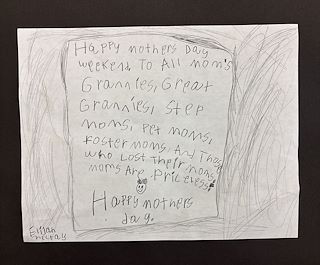 Happy mothers Day
weekend To All mom's
Grannies, Great
Grannies, Step
moms, Pet moms,
Foster moms, And Those
who Lost Their moms
moms Are Priceless!
Happy mothers
day.